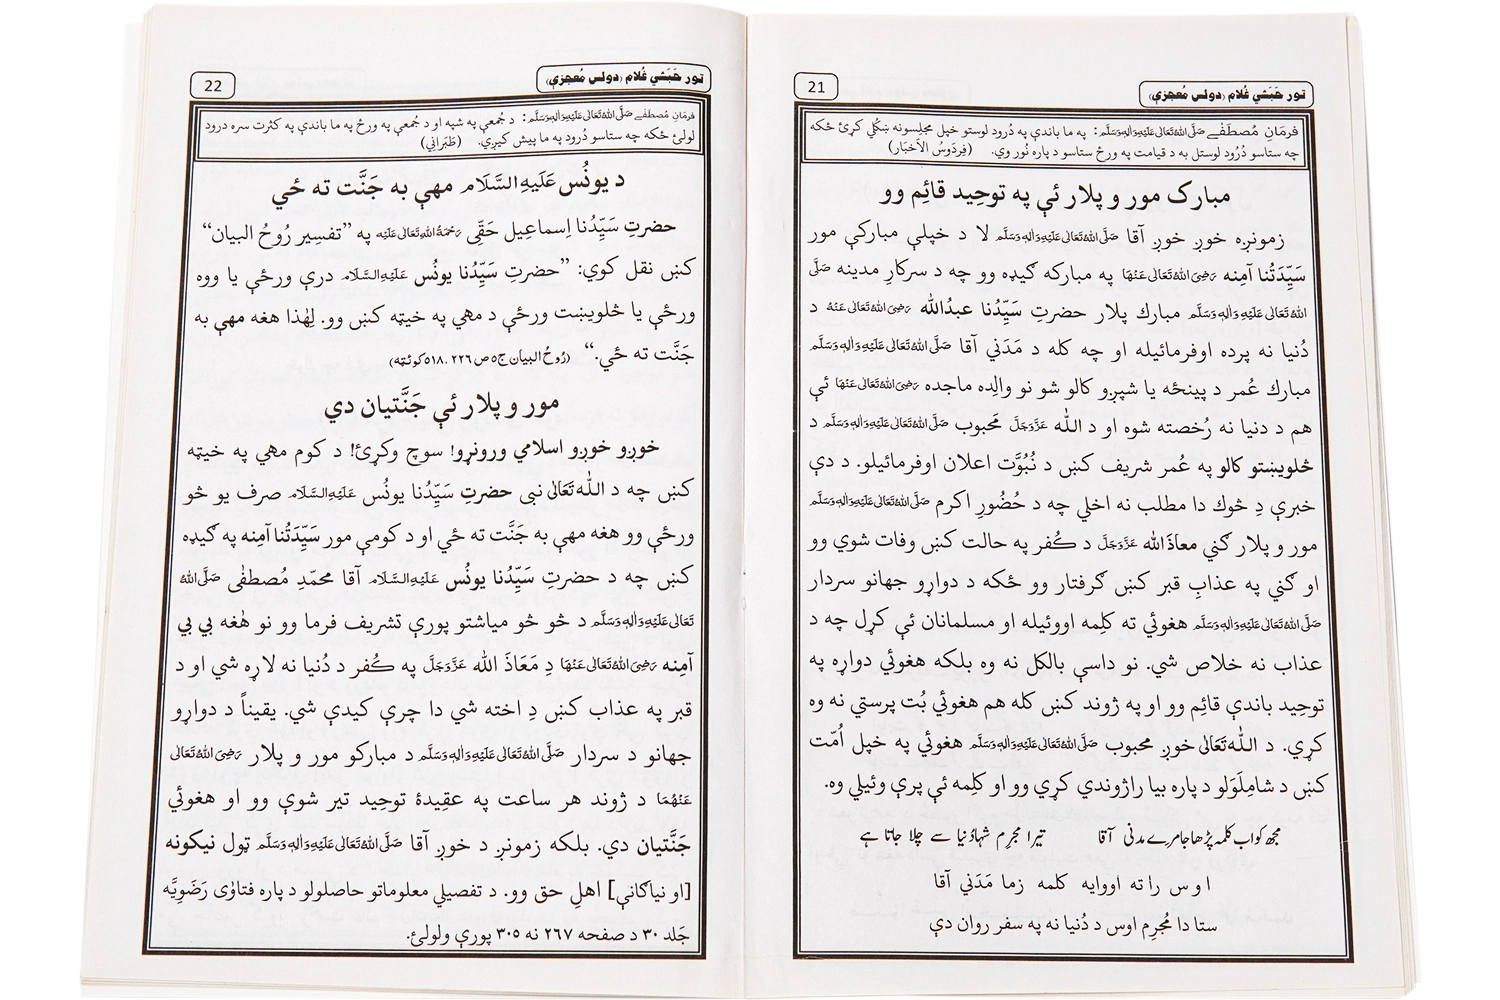 تور حَبَشي غُلام (دولس مُعجزې)
21
فرمانِ مُصطَفٰے صَلَّى اللهُ تَعَالٰى عَلَيْهِ وَاٰلِهٖ وَسَلَّم: په ما باندې په دُرود لوستو خپل مجلِسونه ښکُلي کړئ ځکه
چه ستاسو دُرُود لوستل به د قيامت په ورځ ستاسو د پاره نُور وي. (فِردَوسُ الاَخبَار)
مبارک مور و پلار ئې په توحِيد قائِم وو
زمونږه خوږ خوږ آقا صَلَّى اللهُ تَعَالٰى عَلَيْهِ وَاٰلِهٖ وَسَلَّم لا د خپلې مبارکې مور
سَيِّدَتُنا آمِنه رَضِىَ اللهُ تَعَالٰى عَنْهَا په مبارکه ګيډه وو چه د سرکارِ مدينه صَلَّى
اللهُ تَعَالٰى عَلَيْهِ وَاٰلِهٖ وَسَلَّم مبارك پلار حضرتِ سَيِّدُنا عبدُالله رَضِىَ اللهُ تَعَالٰى عَنْهُ د
دُنيا نه پرده اوفرمائيله او چه کله د مَدَني آقا صَلَّى اللهُ تَعَالٰى عَلَيْهِ وَاٰلِهٖ وَسَلَّم
مبارك عُمر د پينځه يا شپږو کالو شو نو والِده ماجده رَضِىَ اللهُ تَعَالٰى عَنْهَا ئې
هم د دنيا نه رُخصته شوه او د الله عَزَّوَجَلَّ محَبوب صَلَّى اللهُ تَعَالٰى عَلَيْهِ وَاٰلِهٖ وَسَلَّم د
څلويښتو کالو په عُمر شريف کښ د نُبُوَّت اعلان اوفرمائيلو. د دې
خبرې دِ څوك دا مطلب نه اخلي چه د حُضُورِ اکرم صَلَّى اللهُ تَعَالٰى عَلَيْهِ وَاٰلِهٖ وَسَلَّم
مور و پلار ګني معاذَ الله عَزَّوَجَلَّ د کُفر په حالت کښ وفات شوي وو
او ګني په عذابِ قبر کښ ګرفتار وو ځکه د دواړو جهانو سردار
صَلَّى اللهُ تَعَالٰى عَلَيْهِ وَاٰلِهٖ وَسَلَّم هغوئي ته کلِمه اووئيله او مسلمانان ئې کړل چه د
عذاب نه خلاص شي. نو داسې بالکل نه وه بلکه هغوئي دواړه په
توحِيد باندې قائِم وو او په ژوند کښ کله هم هغوئي بُت پرستي نه وه
کړې. د الله تَعَالٰى خوږ محبوب صَلَّى اللهُ تَعَالٰى عَلَيْهِ وَاٰلِهٖ وَسَلَّم هغوئي په خپل اُمّت
کښ د شامِلَولو د پاره بيا راژوندي کړي وو او کلِمه ئې پرې وئيلي وه.
مجھ کو اب کلمہ پڑھا جا مرے مدنی آقا تیرا مجرِم شہا دُنیا سے چلا جاتا ہے
او س را ته اووايه کلمه زما مَدَني آقا
ستا دا مُجرِم اوس د دُنيا نه په سفر روان دې
تور حَبَشي غُلام (دولس مُعجزې)
22
فرمانِ مُصطفٰے صَلَّى اللهُ تَعَالٰى عَلَيْهِ وَاٰلِهٖ وَسَلَّم: د جُمعې په شپه او د جُمعې په ورځ په ما باندې په کثرت سره درود
لولئ ځکه چه ستاسو دُرود په ما پيش کيږي. (طَبَراني)
د يونُس عَلَيهِ السَّلَام مهې به جَنَّت ته ځي
حضرتِ سَيِّدُنا اِسماعِيل حَقِّى رَحْمَةُ اللهِ تَعَالٰى عَلَيْه په ”تفسِير رُوحُ البيان“
کښ نقل کوي: ”حضرتِ سَيِّدُنا يونُس عَلَيْهِ السَّلَام درې ورځې يا ووه
ورځې يا څلويښت ورځې د مهي په خيټه کښ وو. لِهٰذا هغه مهې به
جَنَّت ته ځي.“ (رُوحُ البيان ج۵ ص ۲۲۶، ۵۱۸ کوئټه)
مور و پلار ئې جَنَّتيان دي
خوږو خوږو اسلامي ورونړو! سوچ وکړئ! د کوم مهي په خيټه
کښ چه د الله تَعَالٰى نبى حضرتِ سَيِّدُنا يونُس عَلَيْهِ السَّلَام صرف يو څو
ورځې وو هغه مهې به جَنَّت ته ځي او د کومې مور سَيِّدَتُنا آمِنه په ګيډه
کښ چه د حضرتِ سَيِّدُنا يونُس عَلَيْهِ السَّلَام آقا محمّدِ مُصطفٰى صَلَّى اللهُ
تَعَالٰى عَلَيْهِ وَاٰلِهٖ وَسَلَّم د څو څو مياشتو پورې تشريف فرما وو نو هٰغه بي بي
آمِنه رَضِىَ اللهُ تَعَالٰى عَنْهَا دِ مَعَاذَ الله عَزَّوَجَلَّ په کُفر د دُنيا نه لاړه شي او د
قبر په عذاب کښ دِ اخته شي دا چرې کيدې شي. يقيناً د دواړو
جهانو د سردار صَلَّى اللهُ تَعَالٰى عَلَيْهِ وَاٰلِهٖ وَسَلَّم د مبارکو مور و پلار رَضِىَ اللهُ تَعَالٰى
عَنْهُمَا د ژوند هر ساعت په عقِيدۀ توحِيد تير شوې وو او هغوئي
جَنَّتيان دي. بلکه زمونږ د خوږ آقا صَلَّى اللهُ تَعَالٰى عَلَيْهِ وَاٰلِهٖ وَسَلَّم ټول نيکونه
[او نياګانې] اهلِ حق وو. د تفصيلي معلوماتو حاصلولو د پاره فتاوٰى رَضَوِيَّه
جَلد ۳۰ د صفحه ۲۶۷ نه ۳۰۵ پورې ولولئ.